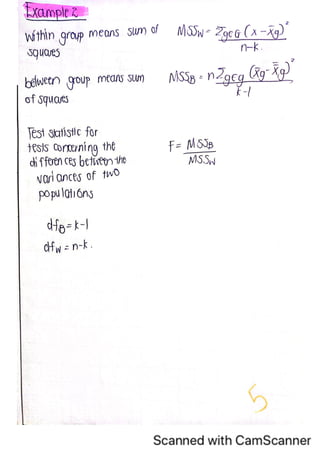 Example 2
within group means sum of squares MSSw = Σg∈G (x - x̄g)² / n-k.
between group means sum of squares MSSB = nΣg∈g (x̄g - x̿g)² / k-1
Test statistic for
tests concerning the
differences between the
variances of two
populations
F = MSSB / MSSW
dfB = k-1
dfw = n-k.
5
Scanned with CamScanner